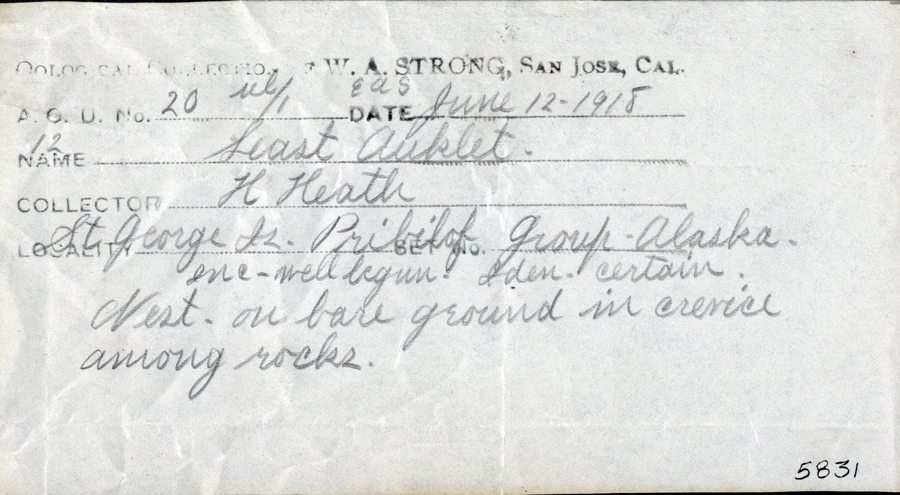 OOLOGICAL COLLECTION OF W. A. STRONG, SAN JOSE, CAL.
A. O. U. No. 20 DATE June 12-1918
12
NAME Least Auklet.
COLLECTOR H Heath
LOCALITY St George Is. Pribilof SET No. Group-Alaska.
inc-well begun. Iden- certain.
Nest- on bare ground in crevice
among rocks.
5831